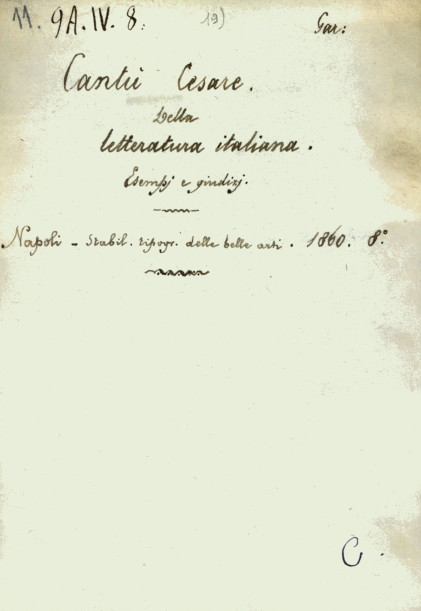 11. 9A. IV. 8. 19) Gar:
Cantù Cesare.
Della
letteratura italiana.
Esempj e giudizj.
Napoli - Stabil. tipogr. delle belle arti. 1860. 8°.
C.